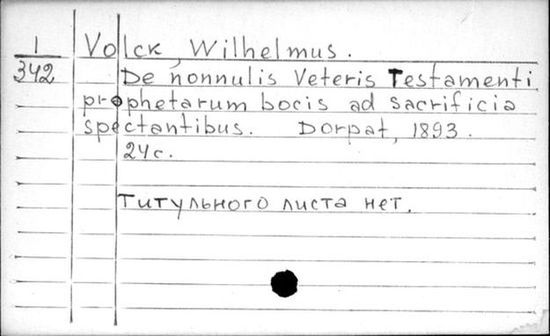 1
342
Volck, Wilhelmus.
De nonnulis Veteris Testamenti
prophetarum bocis ad sacrificia
spectantibus. Dorpat, 1893.
24 с.
Титульного листа нет.